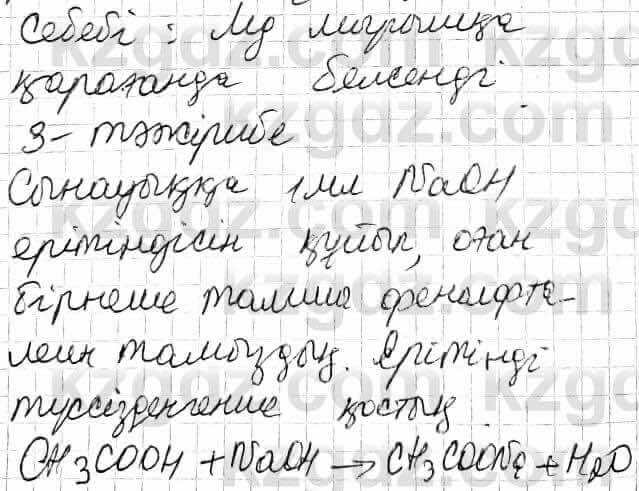 Себебі: Mg мырышқа
қарағанда белсенді
3-тәжірибе
Сынауыққа 1мл NaOH
ерітіндісін құйып, оған
бірнеше тамшы фенолфта-
леин тамыздың. Ерітінді
түссізденгенше қостық
CH₃COOH + NaOH → CH₃COONa + H₂O
kzgdz.com